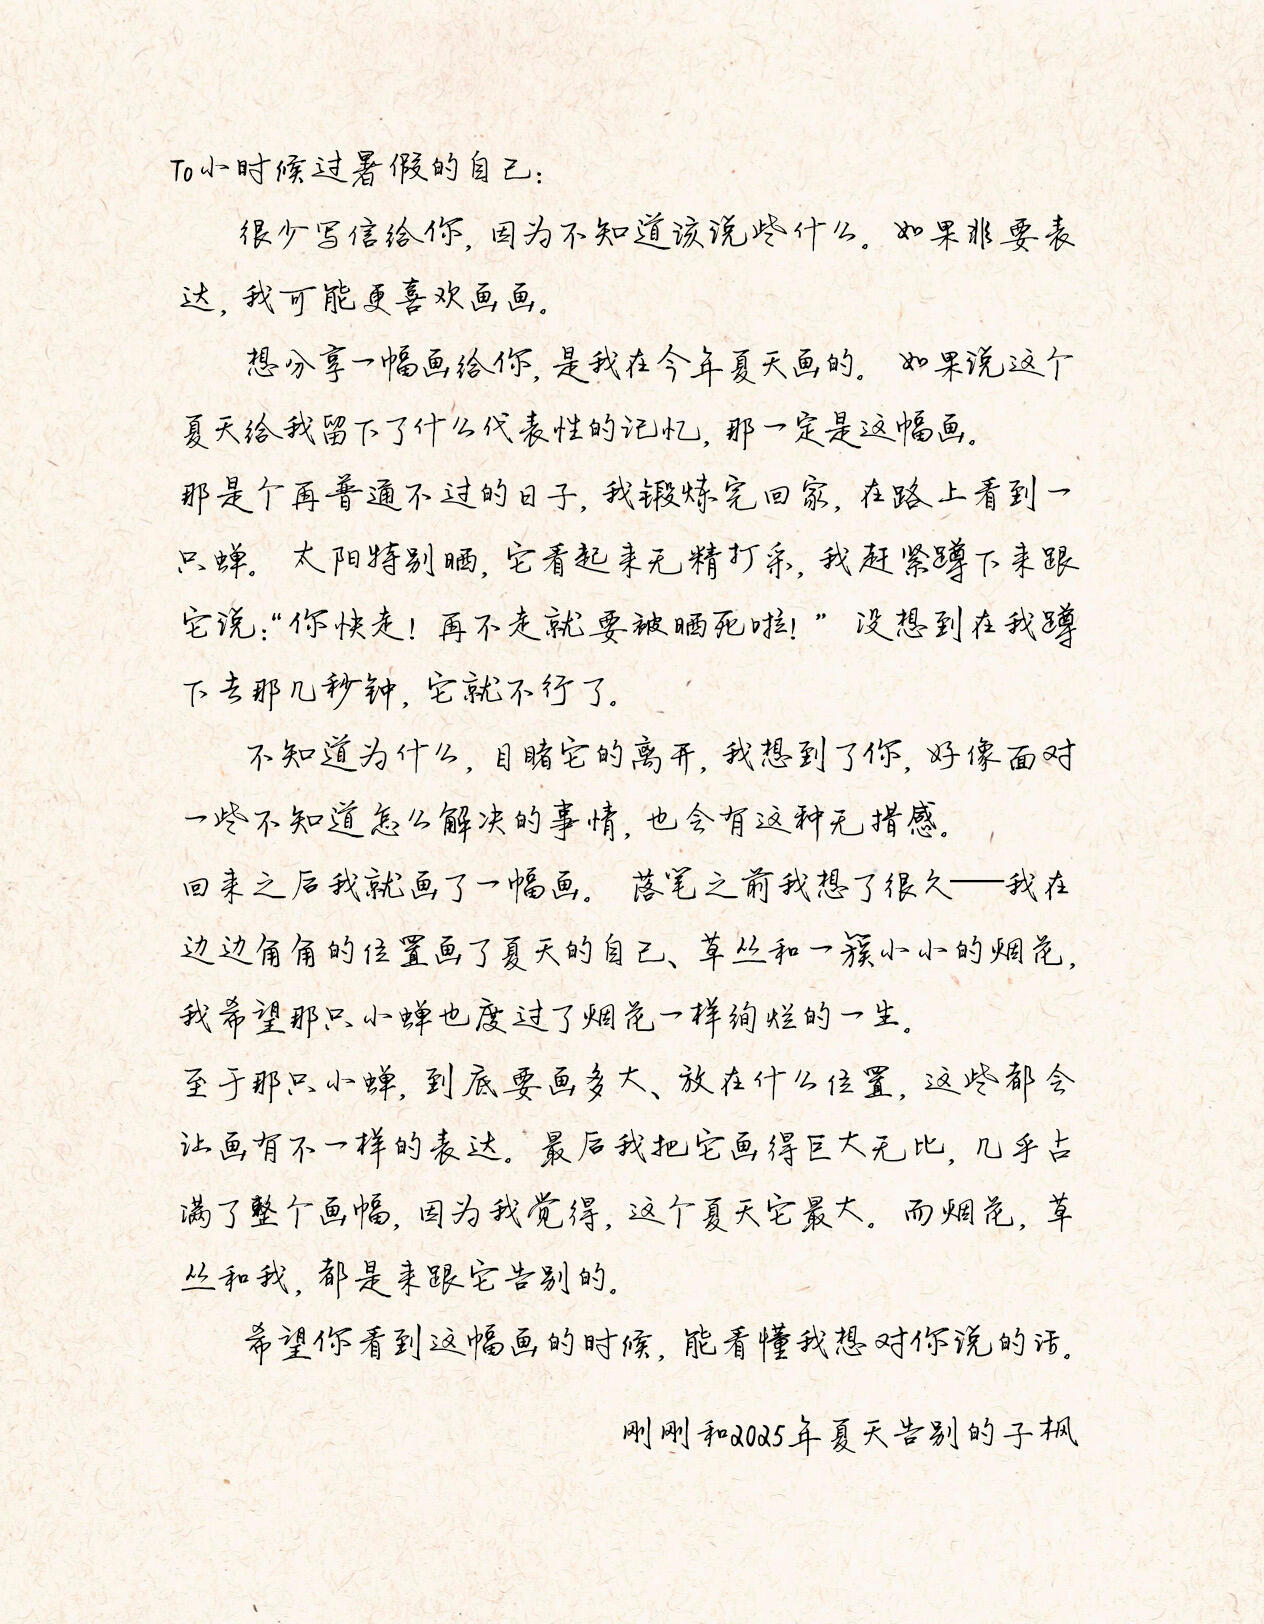 To小时候过暑假的自己:
很少写信给你,因为不知道该说些什么。如果非要表
达,我可能更喜欢画画。
想分享一幅画给你,是我在今年夏天画的。如果说这个
夏天给我留下了什么代表性的记忆,那一定是这幅画。
那是个再普通不过的日子,我锻炼完回家,在路上看到一
只蝉。太阳特别晒,它看起来无精打采,我赶紧蹲下来跟
它说:“你快走!再不走就要被晒死啦!”没想到在我蹲
下去那几秒钟,它就不行了。
不知道为什么,目睹它的离开,我想到了你,好像面对
一些不知道怎么解决的事情,也会有这种无措感。
回来之后我就画了一幅画。落笔之前我想了很久——我在
边边角角的位置画了夏天的自己、草丛和一簇小小的烟花,
我希望那只小蝉也度过了烟花一样绚烂的一生。
至于那只小蝉,到底要画多大、放在什么位置,这些都会
让画有不一样的表达。最后我把它画得巨大无比,几乎占
满了整个画幅,因为我觉得,这个夏天它最大。而烟花,草
丛和我,都是来跟它告别的。
希望你看到这幅画的时候,能看懂我想对你说的话。
刚刚和2025年夏天告别的子枫